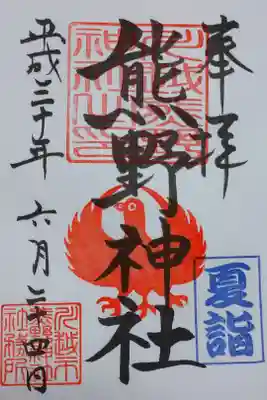 奉拝
熊野神社
平成三十年 六月二十四日
夏詣
川越市
熊野神
社務所